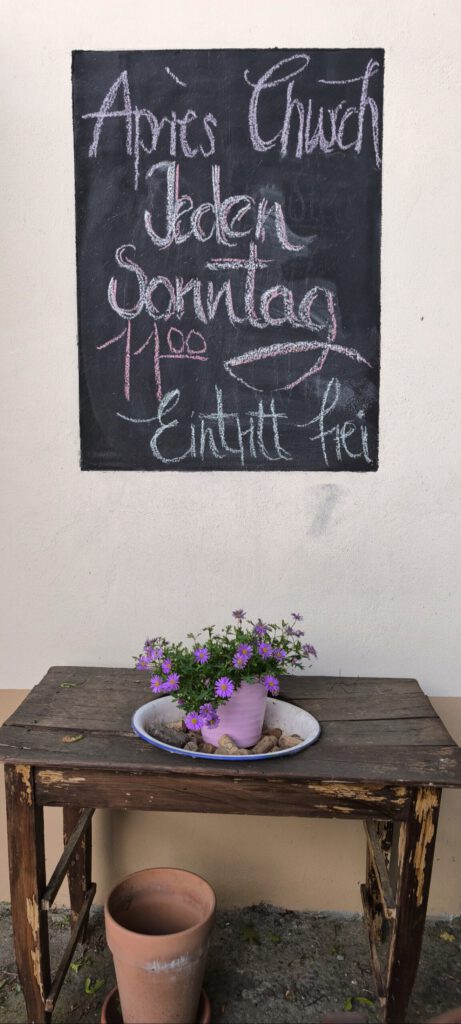 Après Church
Jeden
Sonntag
11⁰⁰
Eintritt frei